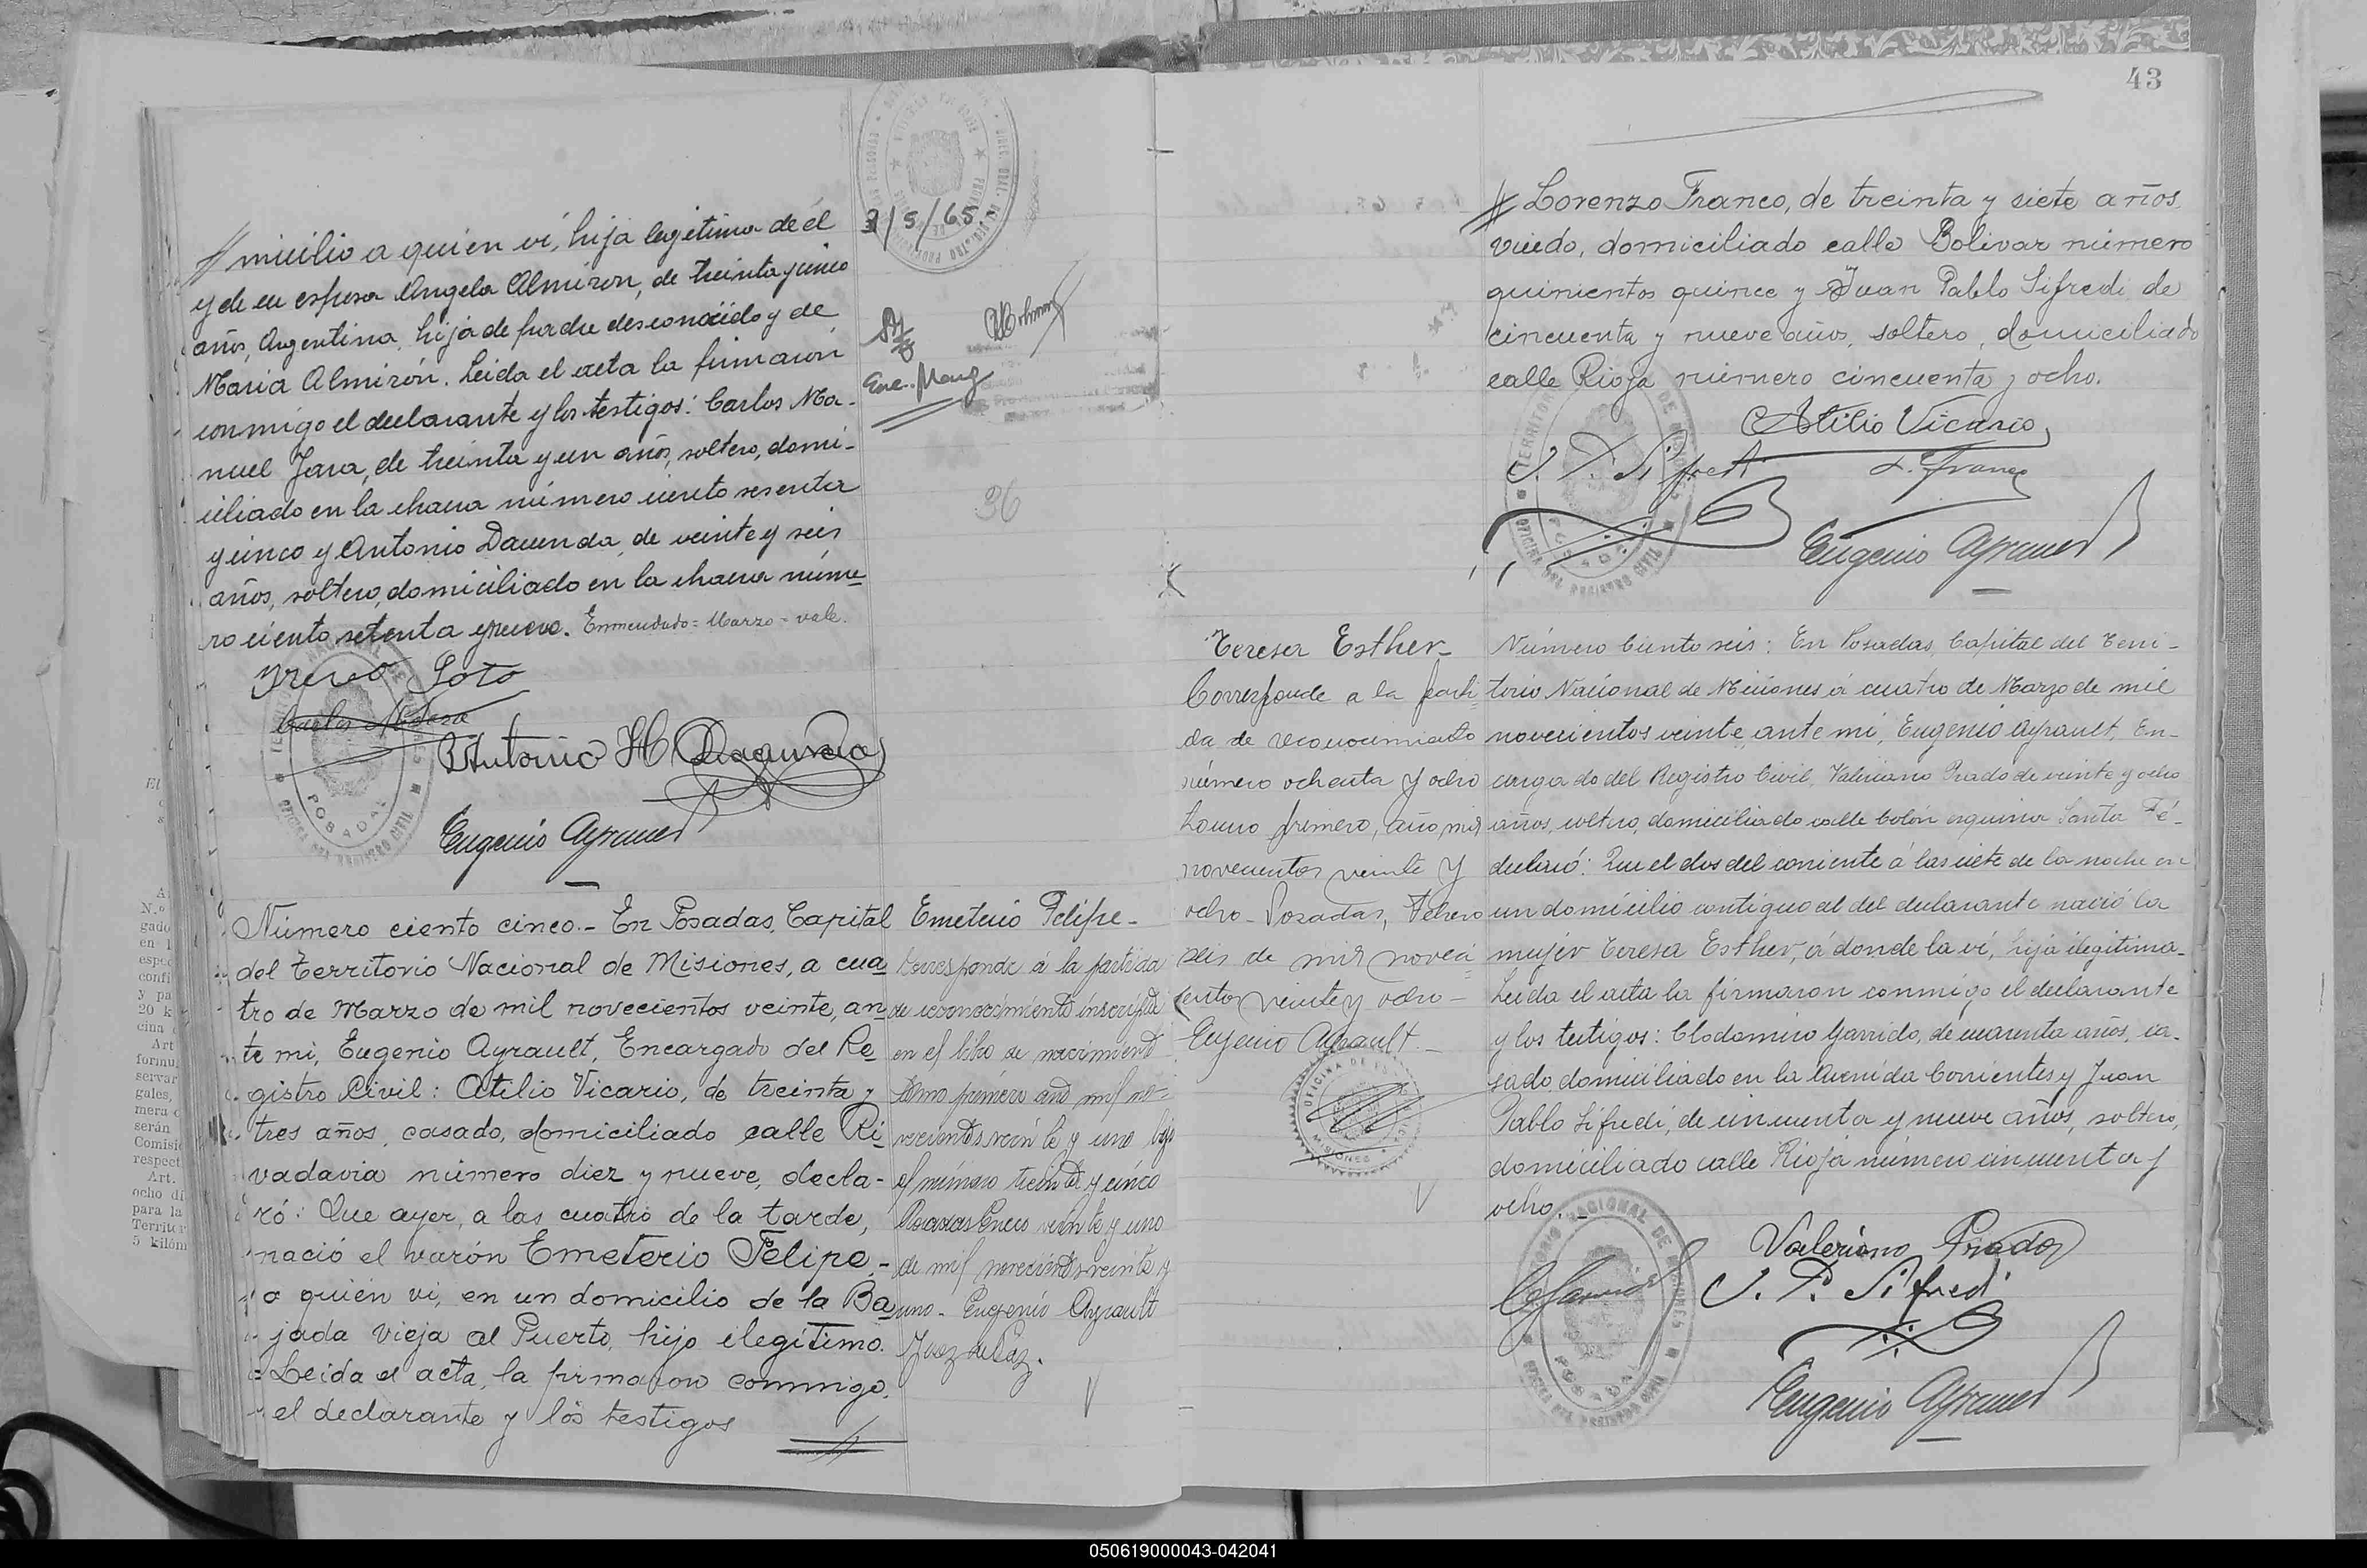 micilio a quien ví, hija legítima de él
y de su esposa Angela Almirón, de treinta y cinco
años, Argentina, hija de padre desconocido y de
María Almirón. Leida el acta la firmaron
conmigo el declarante y los testigos: Carlos Ma-
nuel Jara, de treinta y un años, soltero, domi-
ciliado en la chacra número ciento sesenta
y cinco y Antonio Dacunda, de veinte y seis
años, soltero, domiciliado en la chacra núme-
ro ciento setenta y nueve. Enmendado = Marzo = vale.
Ireneo Soto
Antonio H Dacunda
Eugenio Ayrault
3/5/65
36
Número ciento cinco.- En Posadas, Capital
del Territorio Nacional de Misiones, a cua-
tro de Marzo de mil novecientos veinte, an-
te mi, Eugenio Ayrault, Encargado del Re-
gistro Civil: Atilio Vicario, de treinta y
tres años, casado, domiciliado calle Ri-
vadavia número diez y nueve, decla-
ró: Que ayer, a las cuatro de la tarde,
nació el varón Emeterio Felipe,-
a quién vi, en un domicilio de la Ba-
jada vieja al Puerto, hijo ilegítimo.
Leida el acta, la firmaron conmigo,
el declarante y los testigos
Emeterio Felipe-
Corresponde á la partida
de reconocimiento inscripta
en el libro de nacimiento
tomo primero año mil no-
vecientos veinte y uno bajo
el número treinta y cinco
Posadas Enero veinte y uno
de mil novecientos veinte y
uno - Eugenio Ayrault
Juez de Paz.
43
Lorenzo Franco, de treinta y siete años
viudo, domiciliado calle Bolivar número
quinientos quince y Juan Pablo Sifredi de
cincuenta y nueve años, soltero, domiciliado
calle Rioja número cincuenta y ocho.
Atilio Vicario
J. P. Sifredi
L. Franco
Eugenio Ayrault
Teresa Esther-
Corresponde a la parti-
da de reconocimiento
número ochenta y ocho
tomo primero, año mil
novecientos veinte y
ocho- Posadas, Febrero
seis de mil noveci-
entos veinte y ocho-
Eugenio Ayrault.-
Número Ciento seis: En Posadas, Capital del Terri-
torio Nacional de Misiones á cuatro de Marzo de mil
novecientos veinte, ante mi, Eugenio Ayrault, En-
cargado del Registro Civil, Valeriano Prado de veinte y ocho
años, soltero, domiciliado calle Colón esquina Santa Fé-
declaró: Que el dos del corriente á las siete de la noche en
un domicilio contiguo al del declarante nació la
mujer Teresa Esther, á donde la ví, hija ilegítima.
Leida el acta la firmaron conmigo el declarante
y los testigos: Clodomiro Garrido, de cuarenta años, ca-
sado, domiciliado en la Avenida Corrientes y Juan
Pablo Sifredi, de cincuenta y nueve años, soltero,
domiciliado calle Rioja número cincuenta y
ocho.-
Valeriano Prado
J. P. Sifredi
Eugenio Ayrault
050619000043-042041